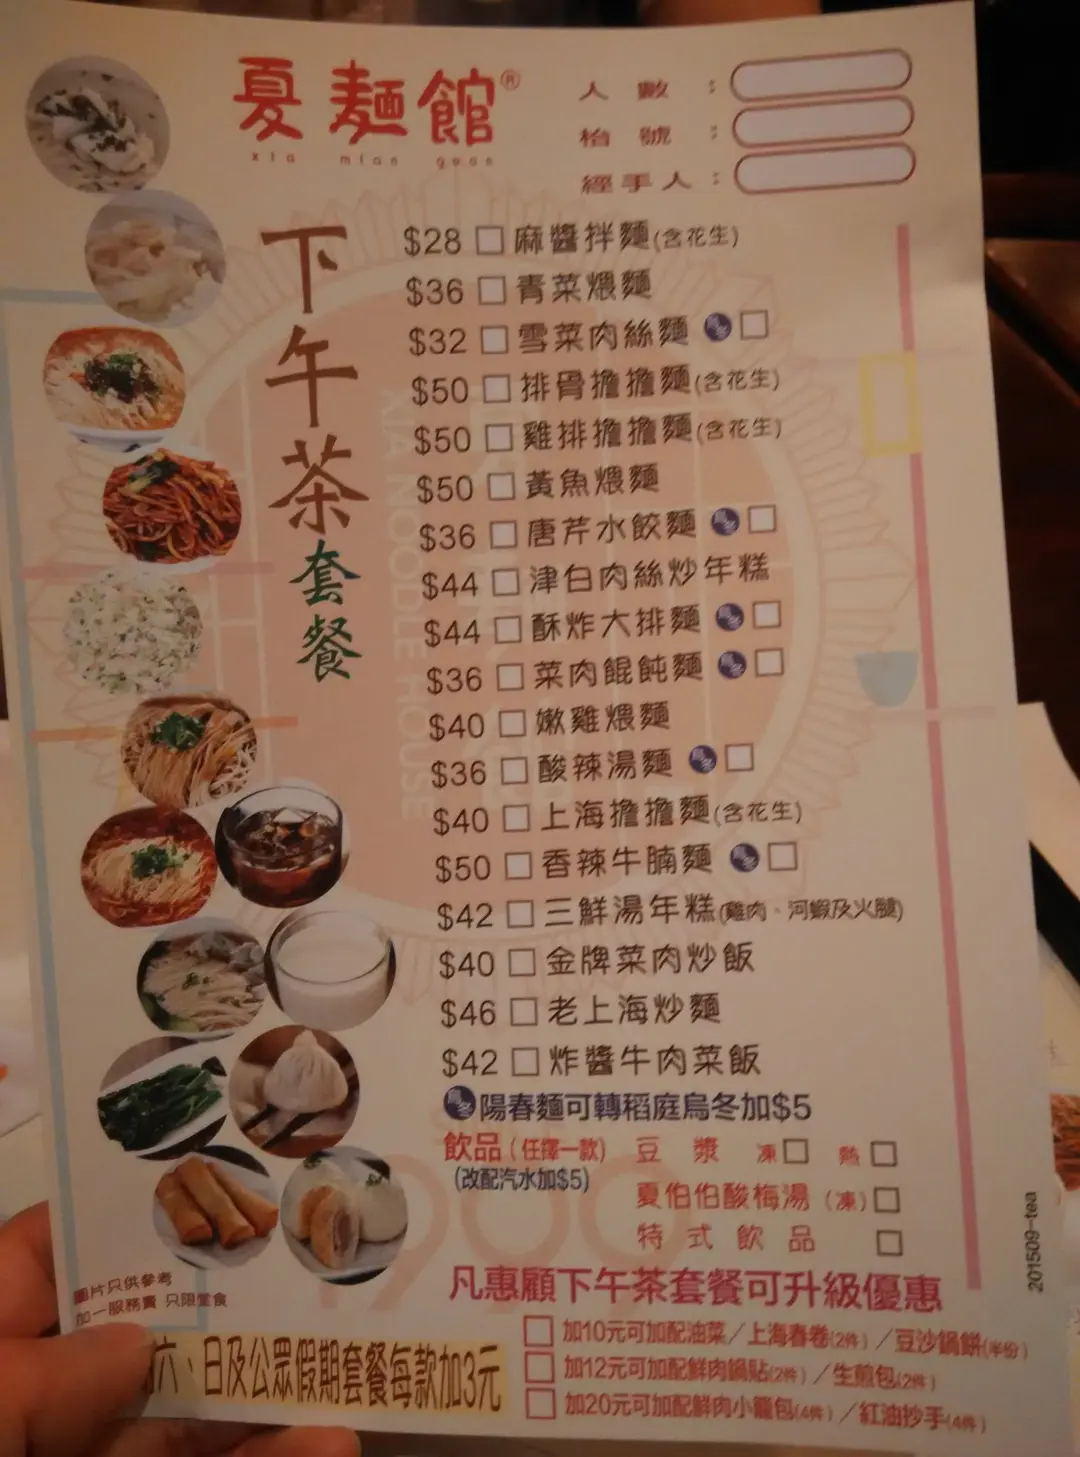 夏麵館®
xia mian guan
人數：
枱號：
經手人：
下午茶套餐
$28 □ 麻醬拌麵(含花生)
$36 □ 青菜煨麵
$32 □ 雪菜肉絲麵 烏冬 □
$50 □ 排骨擔擔麵(含花生)
$50 □ 雞排擔擔麵(含花生)
$50 □ 黃魚煨麵
$36 □ 唐芹水餃麵 烏冬 □
$44 □ 津白肉絲炒年糕
$44 □ 酥炸大排麵 烏冬 □
$36 □ 菜肉餛飩麵 烏冬 □
$40 □ 嫩雞煨麵
$36 □ 酸辣湯麵 烏冬 □
$40 □ 上海擔擔麵(含花生)
$50 □ 香辣牛腩麵 烏冬 □
$42 □ 三鮮湯年糕(雞肉、河蝦及火腿)
$40 □ 金牌菜肉炒飯
$46 □ 老上海炒麵
$42 □ 炸醬牛肉菜飯
烏冬 陽春麵可轉稻庭烏冬加$5
飲品(任擇一款) 豆漿 凍□ 熱□
(改配汽水加$5)
夏伯伯酸梅湯(凍)□
特式飲品 □
凡惠顧下午茶套餐可升級優惠
□ 加10元可加配油菜／上海春卷(2件)／豆沙鍋餅(半份)
□ 加12元可加配鮮肉鍋貼(2件)／生煎包(2件)
□ 加20元可加配鮮肉小籠包(4件)／紅油抄手(4件)
圖片只供參考
加一服務費 只限堂食
六、日及公眾假期套餐每款加3元
201509-tea
XIA NOODLE HOUSE
1900